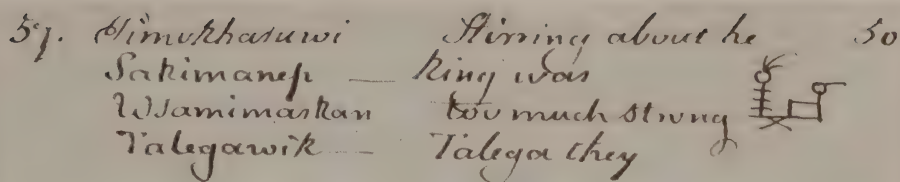 57. Nimukhasuwi Stirring about he 50
Sakimanep — King was
Wsamimaskan too much strong
Talegawik — Talega they